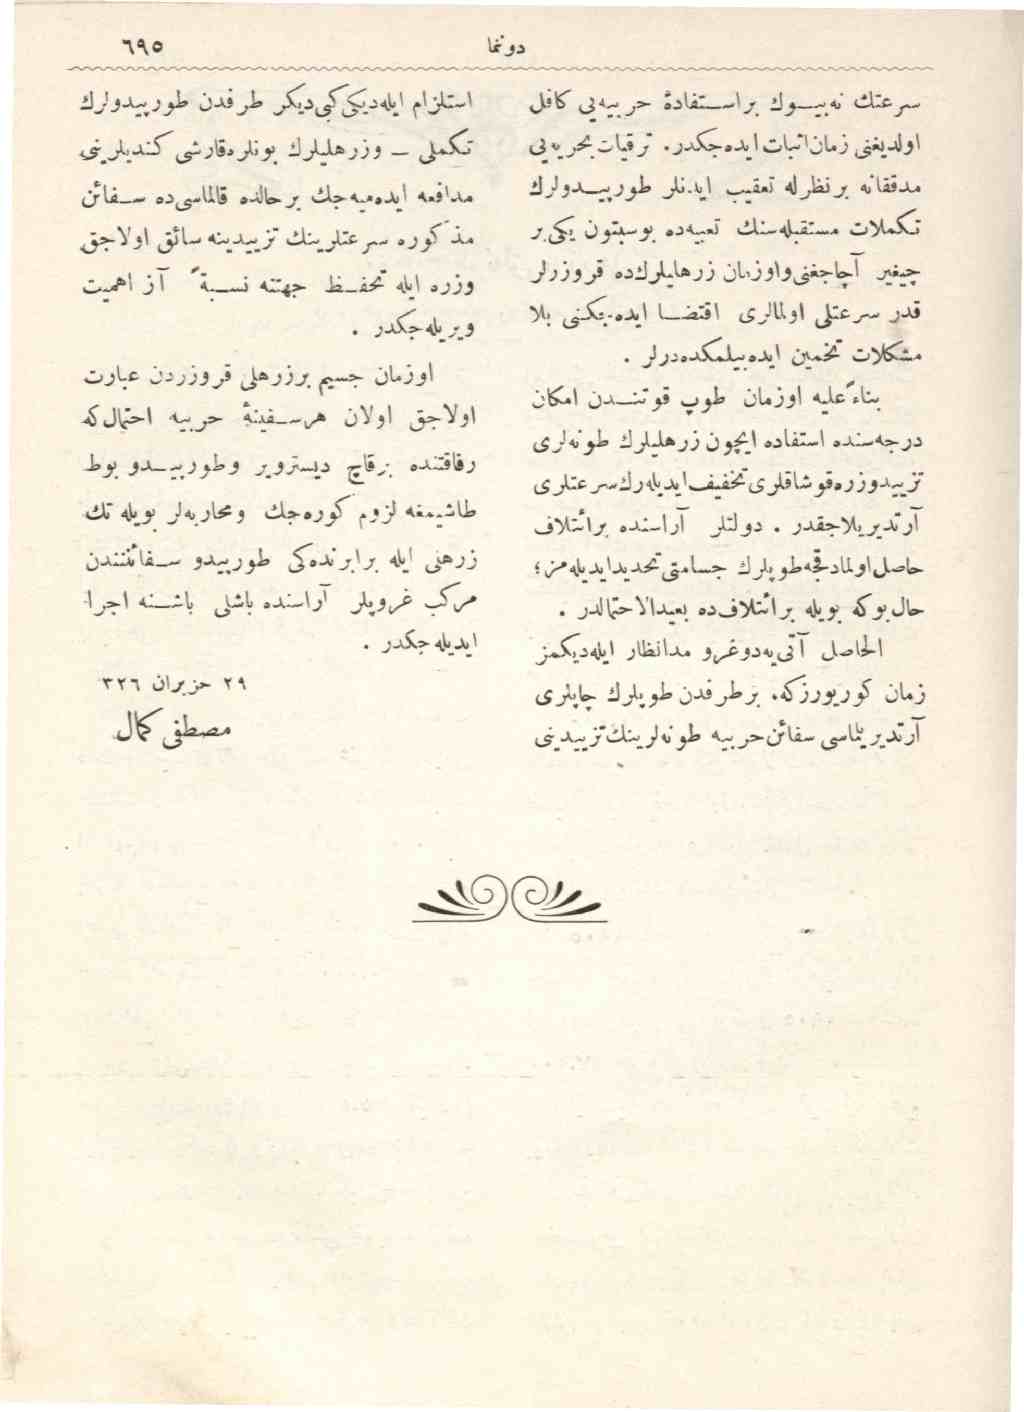 دوننما
٦٩٥
سرعتك نه بیوك بر استفادهٔ حربیه یی كافل
اولدیغنی زمان اثبات ایده جكدر. ترقیات بحریه یی
مدققانه برنظرله تعقیب ایدنلر طورپیدولرك
تكملات مستقبله سنك تعبیه ده بوسبتون یكی بر
چیغیر آچاجغنی واوزمان زرهلیلرك ده قروزرلر
قدر سرعتلی اولمالری اقتضا ایده جكنی بلا
مشكلات تخمین ایده بیلمكده درلر .
بناءً علیه اوزمان طوپ قوتندن امكان
درجه سنده استفاده ایچون زرهلیلرك طونه لری
تزیید وزره قوشاقلری تخفیف ایدیله رك سرعتلری
آرتدیریلاجقدر . دولتلر آراسنده برائتلاف
حاصل اولمادقجه طوپلرك جسامتی تحدید ایدیله مز ؛
حال بوكه بویله برائتلاف ده بعید الاحتمالدر .
الحاصل آتی یه دوغرو مد انظار ایله دیكمز
زمان كوریورزكه، برطرفدن طوپلرك چاپلری
آرتدیریلماسی سفائن حربیه طونه لرینك تزییدینی
استلزام ایله دیكی كبی دیكر طرفدن طورپیدولرك
تكملی — وزرهلیلرك بونلره قارشی كندیلرینی
مدافعه ایده میه جك برحالده قالماسی ده سفائن
مذكوره سرعتلرینك تزییدینه سائق اولاجق
وزره ایله تحفظ جهتنه نسبةً آز اهمیت
ویریله جكدر .
اوزمان جسیم برزرهلی قروزردن عبارت
اولاجق اولان هرسفینهٔ حربیه احتمال كه
رفاقتنده برقاچ دیسترویر وطورپیدو بوط
طاشیمغه لزوم كوره جك ومحاربه لر بویله تك
زرهلی ایله برابرنده كی طورپیدو سفائنندن
مركب غروپلر آراسنده باشلی باشنه اجرا
ایدیله جكدر .
٢٩ حزیران ٣٢٦
مصطفی كمال